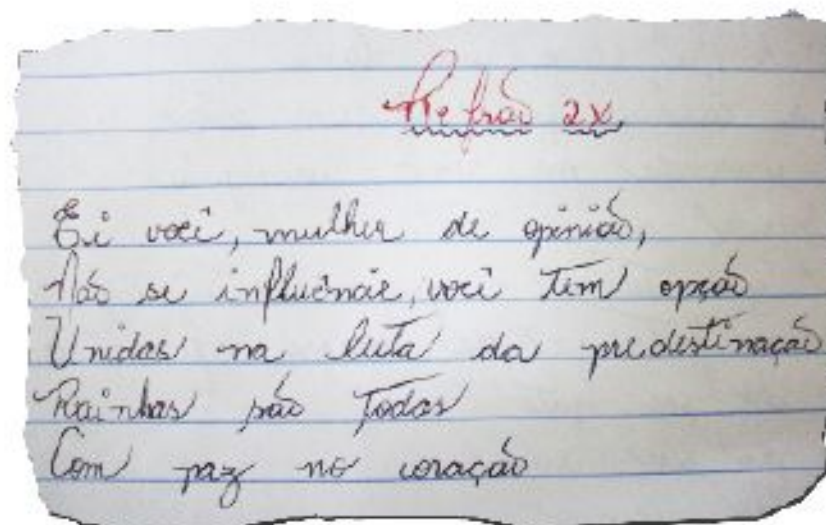 Refrão 2x
Ei você, mulher de opinião,
Não se influêncie, você tem opção
Unidas na luta da predestinação
Rainhas são todas
Com paz no coração